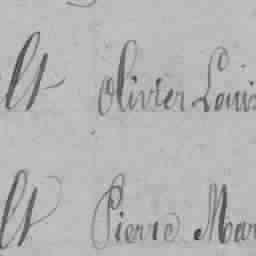 lt Olivier Louis
lt Pierre Mar